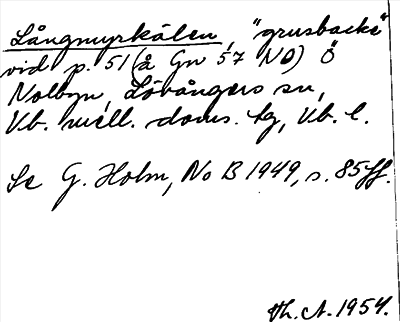 Långmyrkälen, "grusbacke"
vid p. 51 (å Gn 57 NO) Ö
Nolbyn, Lövångers sn,
Vb. mell. doms. tg, Vb. l.
Se G. Holm, No B 1949, s. 85ff.
Th. A. 1954.